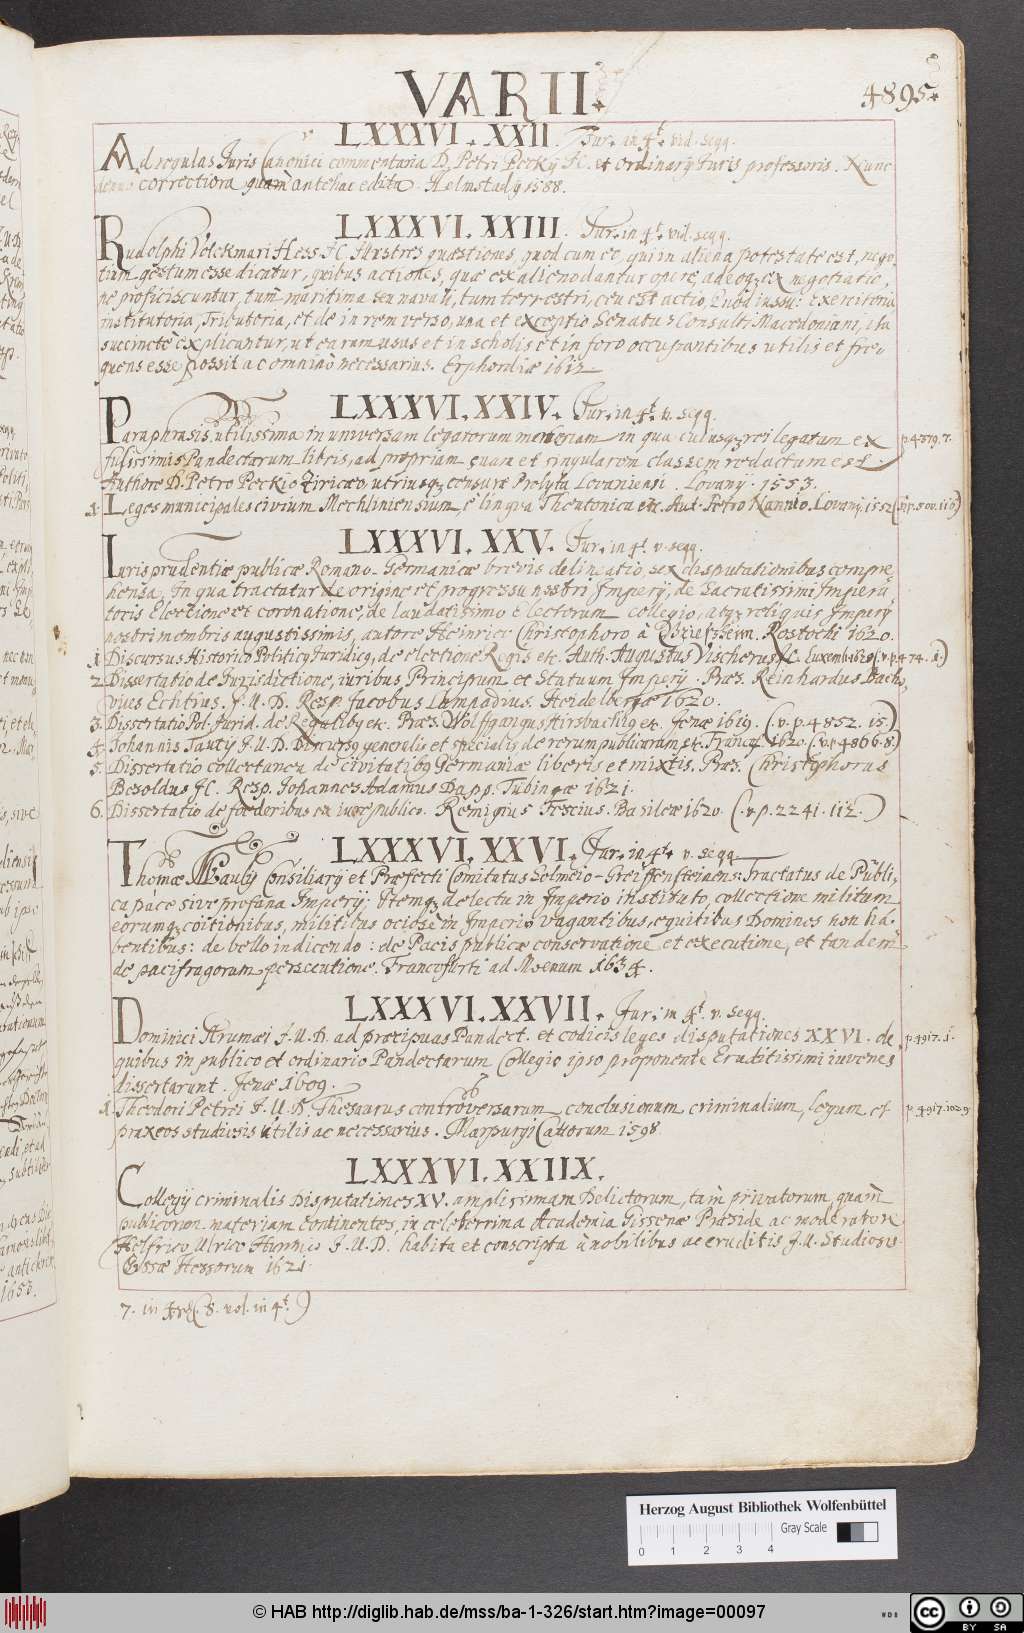 VARII.
4895.
LXXXVI. XXII. Jur. in 4t. vid. seqq.
Ad regulas Juris Canonici commentaria D. Petri Peckÿ JC. et Ordinarÿ Juris professoris. Nunc
denuo correctiora quàm antehac edita. Helmstadÿ 1588.
LXXXVI. XXIII. Jur. in 4t. vid. seqq.
Rudolphi Volckmari Hess. JC. Illustres quæstiones, quod cum eo, qui in aliena potestate est, nego-
tium gestum esse dicatur, quibus actiones, quæ ex alieno dantur opere, adeoq; ex negotiatio-
ne proficiscuntur, tum maritima seu navali, tum terrestri, ceu est actio Quod iussu: Exercitoria
institutoria, Tributoria, et de in rem verso, una et exceptio Senatus Consulti Macedoniani, ita
succincte explicantur, ut earum usus et in scholis et in foro occupantibus utilis et fre-
quens esse possit ac omnino necessarius. Erphordiæ 1612
LXXXVI. XXIV. Jur. in 4t. v. seqq.
Paraphrasis utilissima in universam legatorum materiam in qua cuiusq; rei legatum ex
p. 4379. 7.
fusissimis Pandectarum libris, ad propriam quam et singularem classem redactum est.
Authore D. Petro Peckio Ziricæo, utriusq; censuræ Prolyta Lovaniensi. Lovanÿ. 1553.
1. Leges municipales civium Mechliniensium, è lingua Theutonica etc. Aut. Petro Nannio. Lovanÿ. 1552
LXXXVI. XXV. Jur. in 4t. v. seqq.
Iurisprudentiæ publicæ Romano-Germanicæ brevis delineatio, sex disputationibus compre-
hensa, In qua tractatur de origine et progressu nostri Imperÿ, de Sacratissimi Imperato-
toris Electione et coronatione, de laudatissimo Electorum collegio, atq; reliquis Imperÿ
nostri membris augustissimis, autore Heinrico Christophoro à Griesheim. Rostochi 1620.
1 Discursus Historico Politico Juridicq, de electione Regis etc. Auth. Augustus Vischerus JC. (v. p. 474. 1.)
2. Dissertatio de Jurisdictione, iuribus Principum et Statuum Imperÿ. Præs. Reinhardus Bacho-
vius Echtius. J. U. D. Resp. Jacobus Lampadius. Heidelbergæ 1620.
3. Dissertatio Pol. Jurid. de Regalibq etc. Præs. Wolfgangus Hirsbachiq etc. Jenæ 1619. (v. p. 4852. 15.)
4. Johannis Tautÿ J. U. D. Discursq generalis et specialis de rerumpublicarum etc. Francof. 1620. (v. p. 4866. 8.)
5. Dissertatio collectanea de civitatibq Germaniæ liberis et mixtis. Præs. Christophorus
Besoldus JC. Resp. Johannes Adamus Dapp. Tubingæ 1621.
6. Dissertatio de foederibus ex iure publico. Remigius Fescius. Basileæ 1620. (v. p. 2241. 112.)
LXXXVI. XXVI. Jur. in 4t. v. seqq.
Thomæ Paulÿ Consiliarÿ et Præfecti Comitatus Solmeio-Greiffensteinens: Tractatus de Publi-
ca pace sive profana Imperÿ; Itemq; delectu in Imperio instituto, collectione militum
eorumq; coitionibus, militibus ociosè in Imperio vagantibus, equitibus Domines non ha-
bentibus: de bello indicendo: de Pacis publicæ conservatione et executione, et tandem
de pacifragorum persecutione. Francofurti ad Moenum 1634.
LXXXVI. XXVII. Jur. in 4t. v. seqq.
Dominici Arumæi J. U. D. ad præcipuas Pandect. et codicis leges disputationes XXVI. de
p. 4917. 1.
quibus in publico et ordinario Pandectarum Collegio ipso proponente Eruditissimi iuvenes
dissertarunt. Jenæ 1609.
1. Theodori Petrei J. U. D. Thesaurus controversarum conclusionum criminalium, legum et
p. 4917. 1029.
praxeos studiosis utilis ac necessarius. Marpurgi Cattorum 1598.
LXXXVI. XXIIX.
Collegÿ criminalis Disputationes XV. amplissimam Delictorum, tàm privatorum, quàm
publicorum materiam continentes, in celeberrima Academia Gissenæ Præside ac moderatore
Helfrico Ulrico Hunnio J. U. D. habita et conscripta à nobilibus ac eruditis J. U. Studiosis
Gissæ Hessorum 1621.
7. in 4to (8. vol. in 4t.)
Herzog August Bibliothek Wolfenbüttel
Gray Scale
0 1 2 3 4
© HAB http://diglib.hab.de/mss/ba-1-326/start.htm?image=00097
WDB
cc BY SA